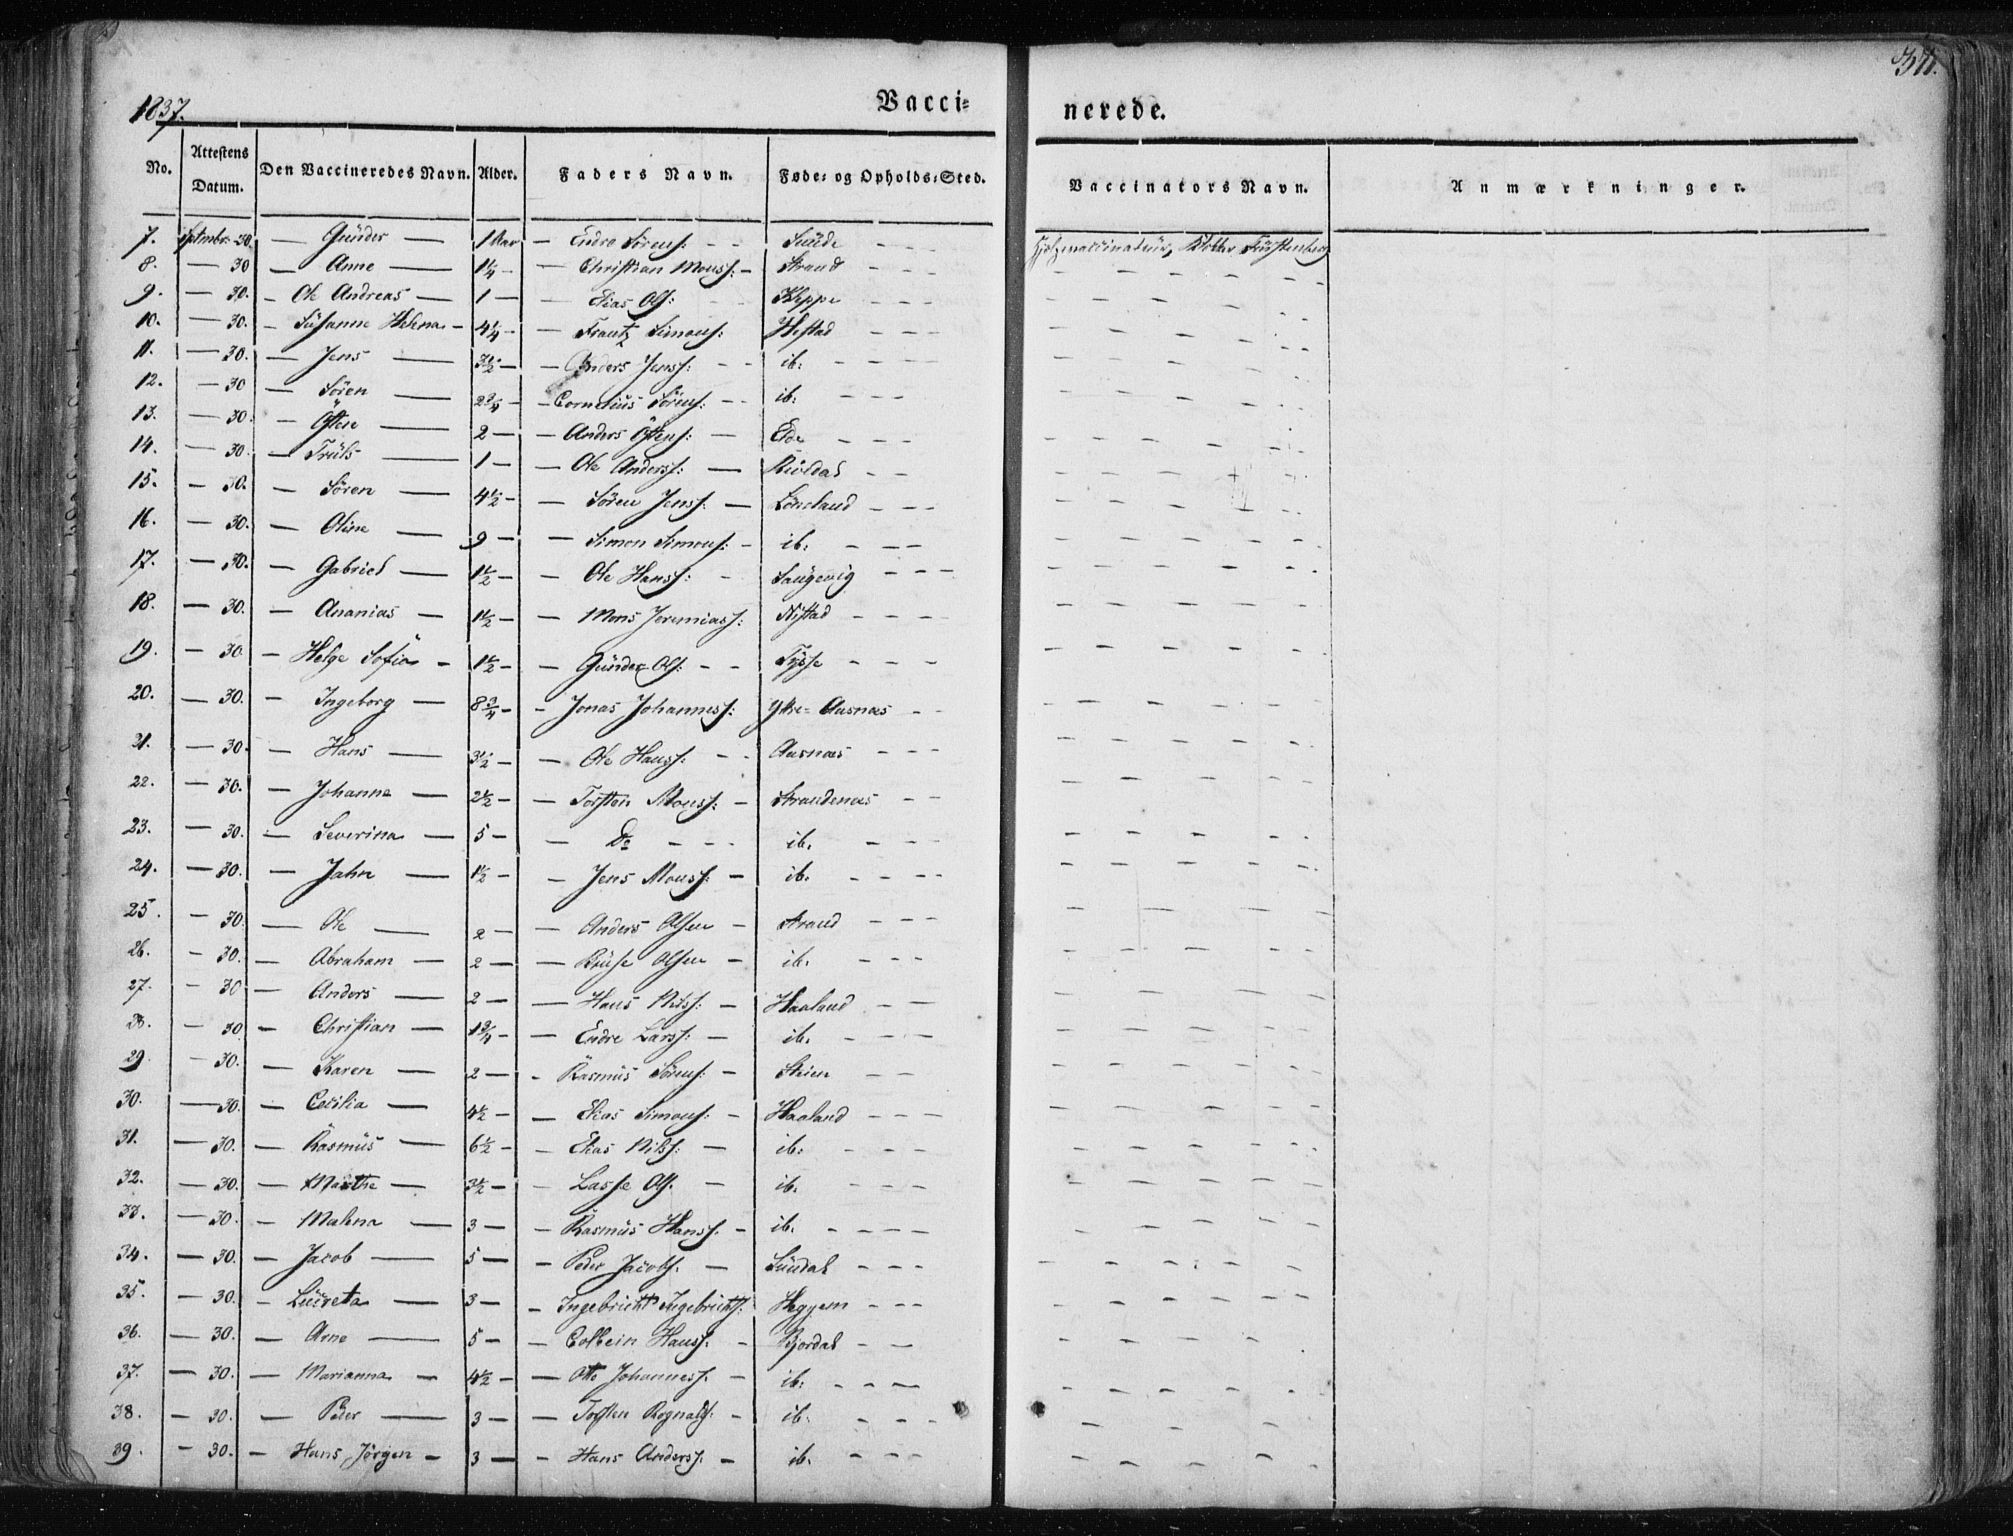 1837.
Vacci=
nerede.
No. Attestens Datum. Den Vaccineredes Navn. Alder. Faders Navn. Føde= og Opholds=Sted. Vaccinators Navn. Anmærkninger.
7. Sptmbr: 30. — Gunder — 1 Aar — Endre Sörens: - - Sunde - - -
8. — 30 — Anne — 1¼ — Christian Monss: - Strand - - -
9. — 30. — Ole Andreas — 1 — Elias Ols: - - Kleppe - - -
10. — 30. — Susanne Helena — 4¼ — Frantz Simons: Hestad - - -
11. — 30. — Jens — 3½ — Anders Jenss: - - ib: - - - -
12. — 30 — Sören — 2¾ — Cornelius Sörens: - - ib: - - -
13. — 30. — Östen — 2 — Anders Östens: — Eide - - -
14. — 30. — Truls — 1 — Ole Anderss: — - -
15. — 30. — Sören — 4½ — Sören Jenss: — Löneland - - -
16. — 30. — Oline — 9 — Simon Simons: - ib: - - -
17. — 30. — Gabriel — 1½ — Ole Hanss: - - - -
18. — 30. — Ananias — 1½ — Mons Jeremiass: Nistad - - -
19. — 30. — Helge Sofia — 1½ — Gunder Ols: - - Tysse - - -
20. — 30. — Ingeborg — 8¾ — Jonas Johanness: Yttre= Ausnæs - -
21. — 30. — Hans — 3½ — Ole Hanss: - - Ausnæs - - -
22. — 30. — Johanna — 2½ — Torsten Monss: - Strandenæs - -
23. — 30. — Severina — 5 — Do - - - ib. - - -
24. — 30. — Jahn — 1½ — Jens Monss: - ib. - - - -
25. — 30. — Ole — 2 — Anders Olsen - Strand - - -
26. — 30. — Abraham — 2 — Bruse Olsen - ib. - - -
27. — 30 — Anders — 2 — Hans Nilss: - Haaland - -
28. — 30 — Christian — 1¾ — Endre Larss: - ib. - - - -
29. — 30. — Karen — 2 — Rasmus Sörens: - Steien - -
30. — 30. — Cecilia — 4½ — Elias Simons: - Haaland - - -
31. — 30. — Rasmus — 6½ — Elias Nilss: — ib: - - - -
32. — 30. — Marthe — 3½ — Lasse Ols. — ib. - - - -
33. — 30. — Malena — 3 — Rasmus Hanss. - ib. - - - -
34. — 30. — Jacob — 5 — Peder Jacobs. — Sundal - - -
35. — 30. — Lucreta — 3 — Ingebricht Ingebrichts: Heggem - - -
36. — 30. — Arne — 5 — Colbein Hanss. - Bjordal - -
37. — 30. — Marianna — 4½ — Otto Johanness. - ib: - - - -
38. — 30. — Peder — 3 — Torsten Rognalds. - ib. - - -
39. — 30. — Hans Jörgen — 3 — Hans Anderss. - ib. - - - -